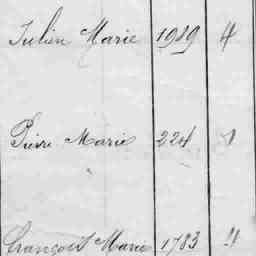 Julien Marie 1989 4
Pierre Marie 224
François Marie 1783 11